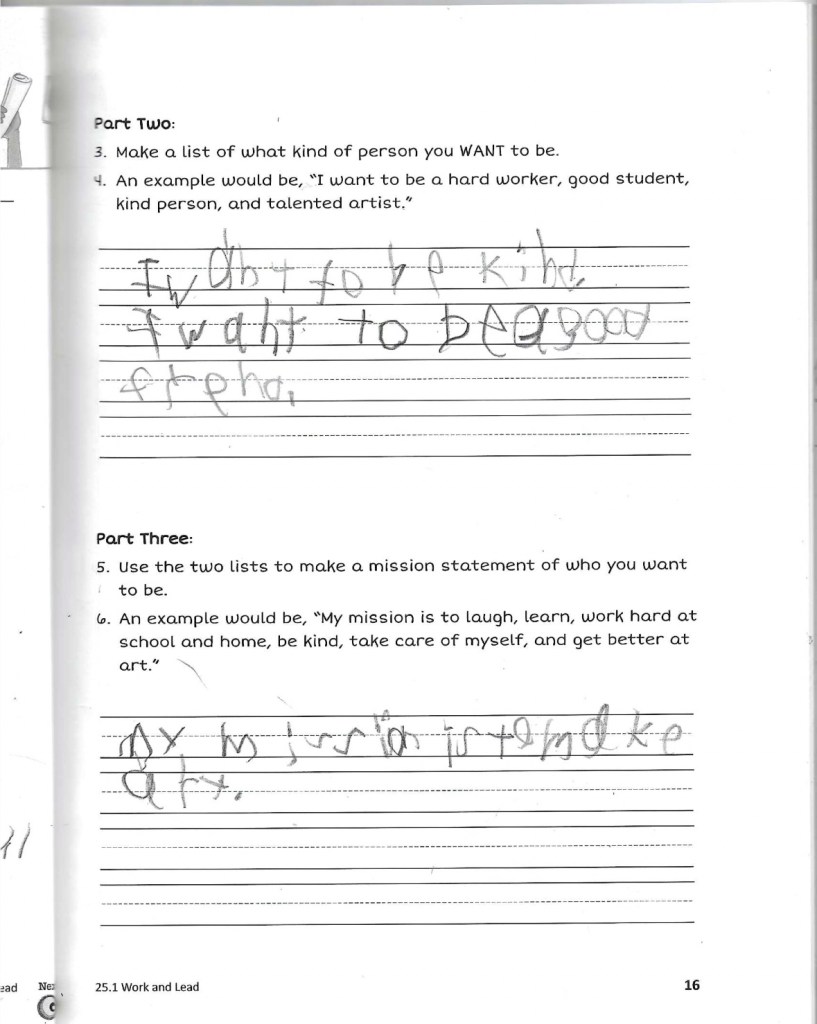 Part Two:
3. Make a list of what kind of person you WANT to be.
4. An example would be, “I want to be a hard worker, good student,
kind person, and talented artist.”
I want to be kind.
I want to be a good
friend.
Part Three:
5. Use the two lists to make a mission statement of who you want
to be.
6. An example would be, “My mission is to laugh, learn, work hard at
school and home, be kind, take care of myself, and get better at
art.”
My mission is to make
art.
25.1 Work and Lead
16